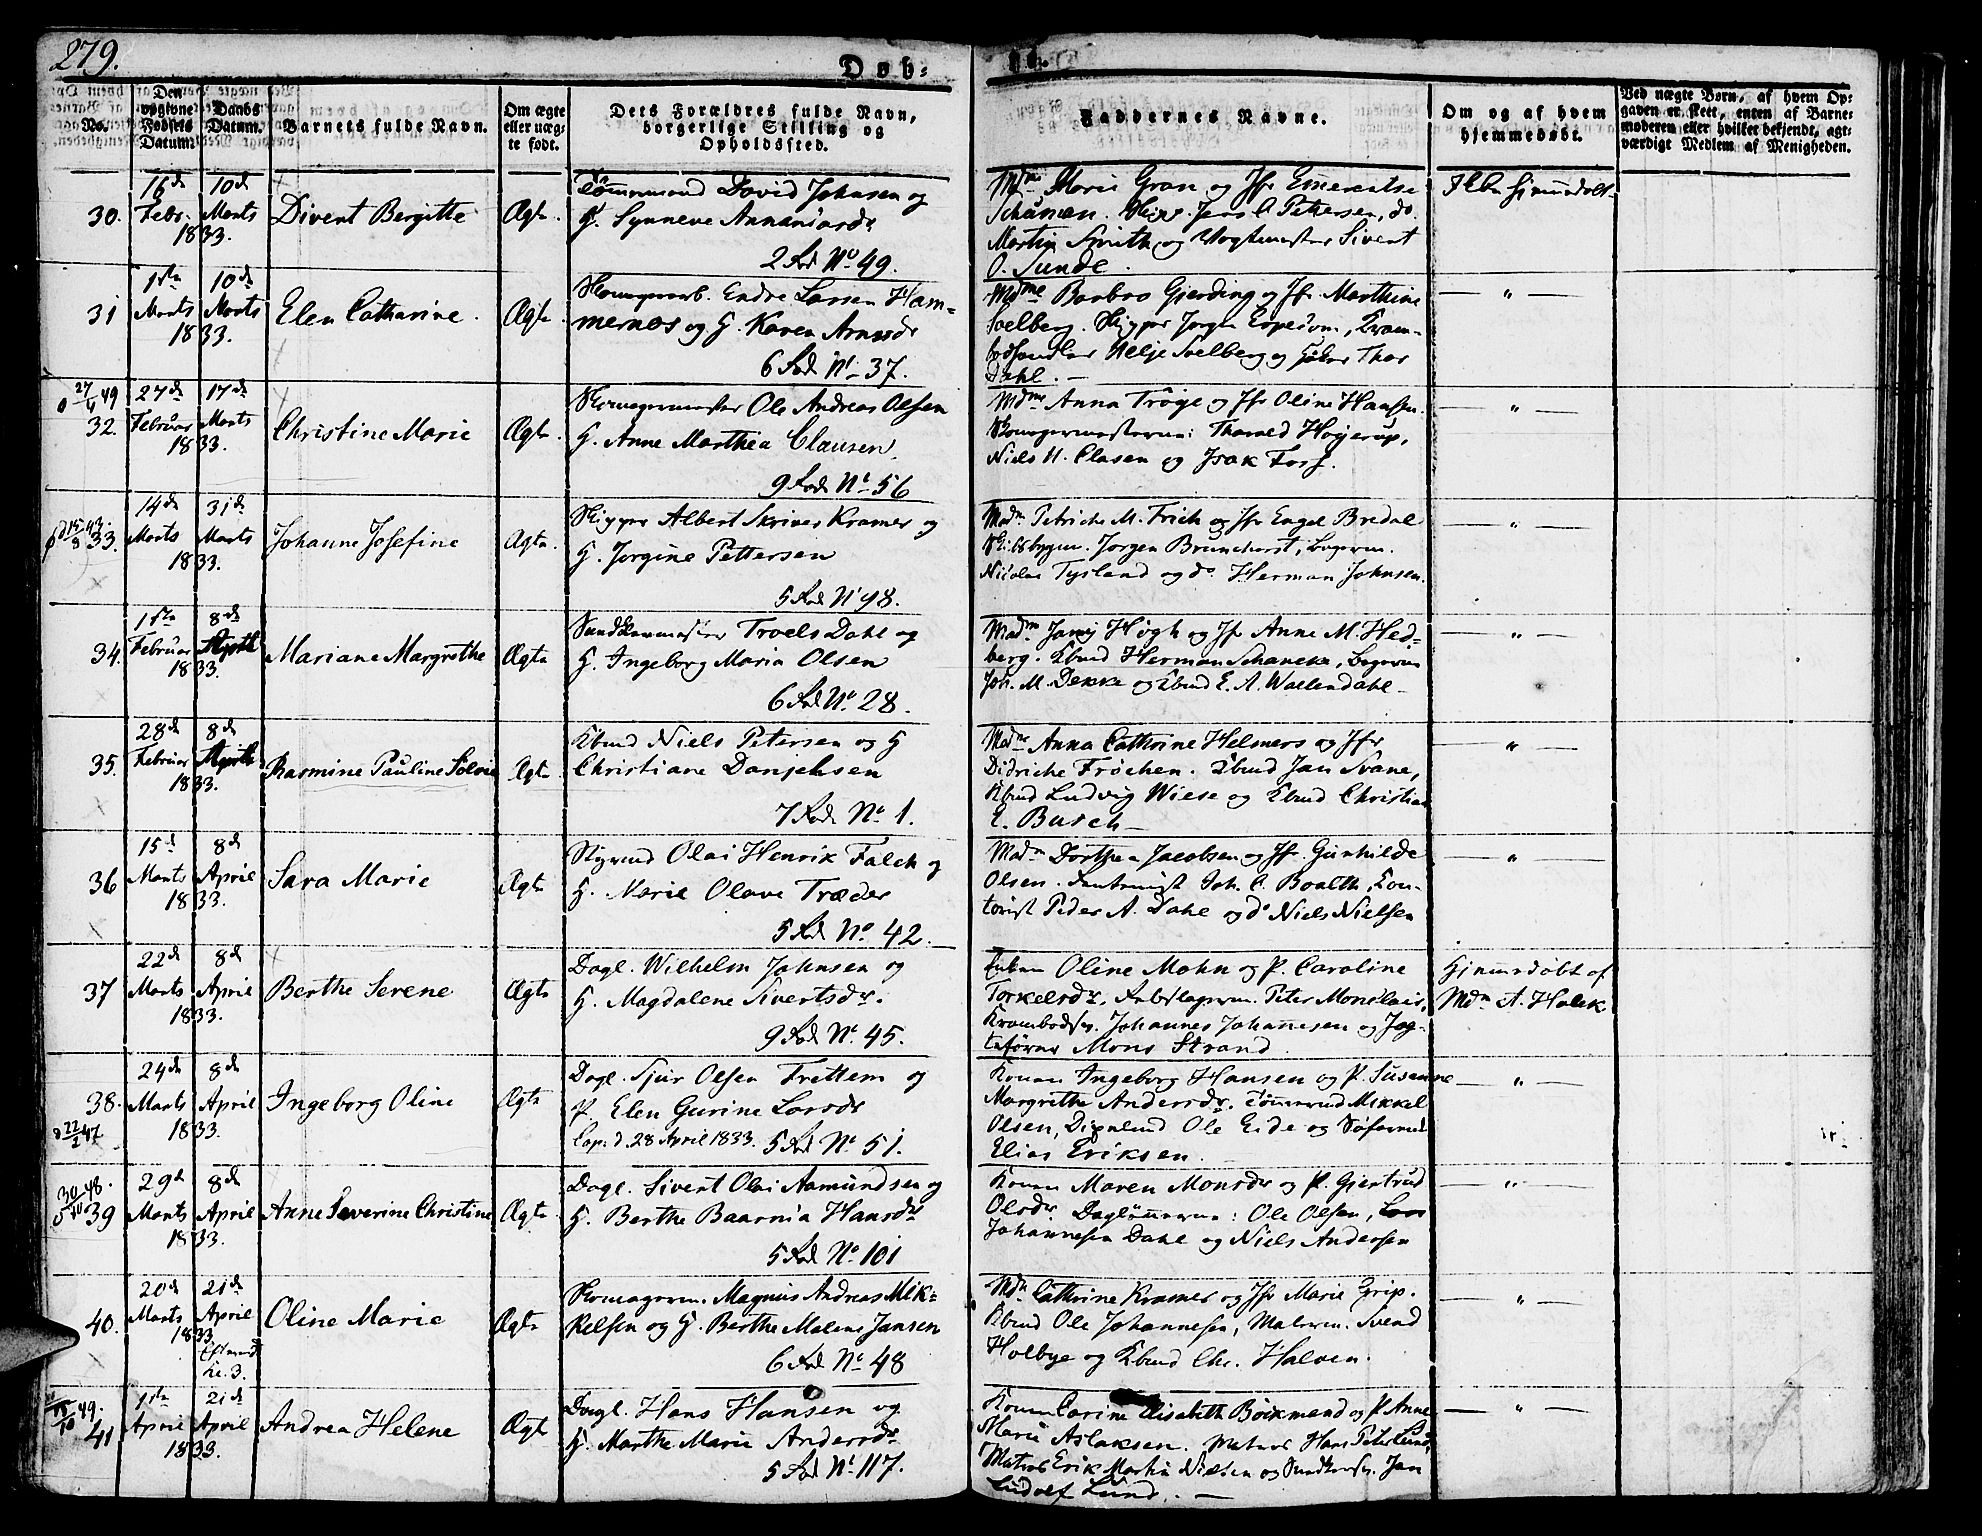 279.
Døb-
te.
No.
Den opgivne Fødsels Datum.
Daabs Datum.
Barnets fulde Navn.
Om ægte eller uægte født.
Dets Forældres fulde Navn, borgerlige Stilling og Opholdssted.
Faddernes Navne.
Om og af hvem hjemmedøbt.
Ved uægte Børn, af hvem Opgaven er skeet, enten af Barnemoderen eller hvilket bekjendt, agtværdigt Medlem af Menigheden.
30.
16de Febr. 1833.
10de Marts
Divert Bergitte
Ægte
Tömmermd David Johnsen og
H. Synneve Annaniasdr
2 Rod No. 49.
Mdme Marie Gran og Jfr Emerentse
Schuman. Skipp. Jens C. Petersen, do.
Martin Smith og Vogtmester Sivert
O. Sunde.
31
1ste Marts 1833.
10de Marts
Elen Catharine.
Ægte
Skomagerarb. Endre Larsen Ham-
mernæs og H. Karen Arnesdr
6 Rod No. 37.
Mdme Barbro Gjerding og Jfr. Marthine
Soelberg. Skipper Jørgen Espesom, Kram-
bodhandler Helje Soelberg og Thor
Dahl. —
— " —
27/4 49
32.
27de Februar 1833.
17de Marts
Christine Marie
Ægte
Skomagermester Ole Andreas Olsen
H. Anne Marthea Clausen.
9 Rod No. 56
Mdme Anna Tröge og Jfr Oline Hansen.
Skomagermesterne: Tharald Høyerup,
Niels H. Clasen og Isak Foss.
— " —
33.
14de Marts 1833.
31de Marts
Johanne Josefine
Ægte
Skipper Albert Skriver Kramer og
H. Jorgine Pettersen
5 Rod No 98.
Madm Petriche M. Frich og Jfr Engel Bredal
Skibsbygm. Jørgen Brunchorst, Bagerm.
Nicolai Tysland og do. Herman Johnsen.
— " —
34.
1ste Februar 1833.
8de April
Mariane Margrethe
Ægte
Sundkarmester Troels Dahl og
H. Ingeborg Maria Olsen
6 Rod No. 28.
Madm Janj Høgh og Jfr Anne M. Hed-
berg. Kbmd Herman Schancke, Bagerm
Joh. M. Dekke og Kbmd E. A. Wallendahl
— " —
35.
28de Februar 1833.
8de April
Rasmine Pauline Solvie
Ægte
Kbmd Niels Petersen og H
Christiane Danielsen
7 Rod No. 1.
Madme Anna Cathrine Helmers og Jfr
Didriche Fröchen. Kbmd Jan Svane,
Kbmd Ludvig Wiese og Kbmd Christian
E. Busch —
— " —
36
15de Marts 1833.
8de April
Sara Marie
Ægte
Styrmd Olai Henrik Falch og
H. Marie Olave Træder
5 Rod No. 42.
Madm Dorthea Jacobsen og Jfr. Gunhilde
Olsen. Joh. C. Boalth, Kon-
torist Peder A. Dahl og do Niels Nielsen
— " —
37
22de Marts 1833.
8de April
Berthe Serene
Ægte
Dagl. Wilhelm Johnsen og
H. Magdalene Sivertsdr.
9 Rod No. 45.
Enken Oline Mohn og P. Caroline
Torkelsdr. Peter Monclair,
Krambodsv. Johannes Johannesen og Jag-
tefører Mons Strand.
Hjemmedøbt af
Mdm A. Holck
38.
22/2 47
24de Marts 1833.
8de April
Ingeborg Oline
Ægte
Dagl. Sjur Olsen Trettem og
P. Elen Gurine Larsdr
Cop. d. 28 April 1833. 5 Rod No. 51.
Konen Ingeborg Hansen og P. Susanne
Margrethe Andersdr. Tömmermd Mikkel
Olsen, Ole Eide og Søfarmd
Elias Eriksen.
— " —
30/10 48.
39
29de Marts 1833.
8de April
Anne Severine Christine
Ægte
Dagl. Sivert Olai Aamundsen og
H. Berthe Baarnia Hansdr
5 Rod No. 101
Konen Maren Monsdr og P. Gjertrud
Olsdr. Daglønnerne: Ole Olsen, Lars
Johannesen Dahl og Niels Andersen
— " —
40.
20de Marts 1833.
21de April
Efterm. Kl. 3.
Oline Marie
Ægte
Skomagerm. Magnus Andreas Mik-
kelsen og H. Berthe Malene Jansen
6 Rod No. 48
Mdm Cathrine Kramer og Jfr Marie Grip.
Kbmd Ole Johannesen, Malerm. Svend
Holbye og Kbmd Chr. Halven.
— " —
49.
41
1ste April 1833.
21de April
Andrea Helene
Ægte
Dagl. Hans Hansen og
H. Marthe Marie Andersdr
5 Rod No. 117.
Konen Carine Elisabeth Böckmand og P. Anne
Marie Aslaksen. Matros Hans Peter Lund,
Matros Erik Martin Nielsen og Jan
Ludolf Lund. —
— " —